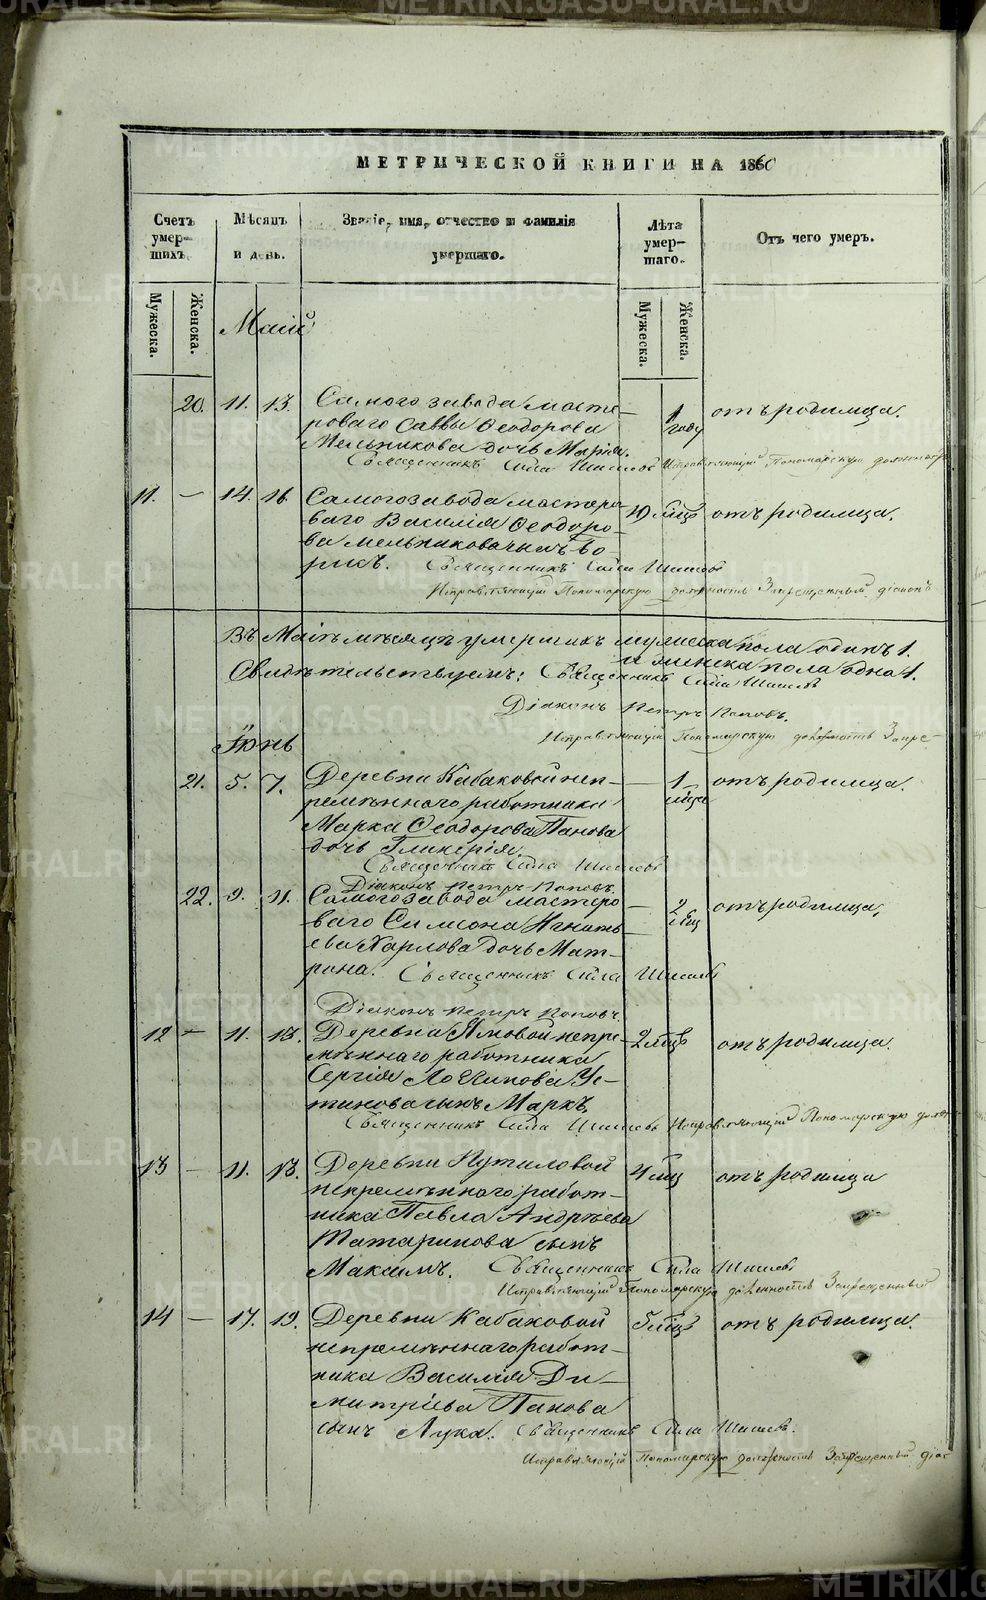 МЕТРИЧЕСКОЙ КНИГИ НА 1860
Счетъ умершихъ.
Мѣсяцъ и день.
Званіе, имя, отчество и фамилія умершаго.
Лѣта умершаго.
Отъ чего умеръ.
Мужеска.
Женска.
Мужеска.
Женска.
Маій
20. 11. 13. Самого завода масте- 1 отъ родимца.
роваго Саввы Ѳеодорова году
Мельникова дочь Марія.
Священникъ Сила Шишевъ Исправляющій Пономарскую должность
11. — 14. 16. Самого завода мастеро- 10 мѣц отъ родимца.
ваго Василія Ѳеодоро-
ва Мельникова сынъ Бо-
рисъ. Священникъ Сила Шишевъ
Исправляющій Пономарскую должность Запрещенный діаконъ
Въ Маіѣ мѣсяцѣ умершихъ мужеска пола одинъ 1.
и женска пола одна 1.
Свидѣтельствуемъ: Священникъ Сила Шишевъ
Діаконъ Петръ Поповъ.
Исправляющій Пономарскую должность Запре-
Іюнь
21. 5. 7. Деревни Кабаковой неп- — 1 отъ родимца.
ремѣннаго работника мѣца
Марка Ѳеодорова Панова
дочь Гликерія.
Священникъ Сила Шишевъ
Діаконъ Петръ Поповъ.
22. 9. 11. Самого завода мастеро- — 2 отъ родимца,
ваго Симеона Игнать- мѣц
ева Карлова дочь Мат-
рона. Священникъ Сила Шишевъ
Діаконъ Петръ Поповъ.
12 — 11. 13. Деревни Ямовой непре- 2 мѣцъ отъ родимца.
мѣннаго работника
Сергія Логинова Ус-
тинова сынъ Маркъ.
Священникъ Сила Шишевъ Исправляющій Пономарскую долж
13 — 11. 13. Деревни Путиловой 4 мѣц отъ родимца
непремѣннаго работ-
ника Павла Андреева
Татаринова сынъ
Максимъ. Священникъ Сила Шишевъ
Исправляющій Пономарскую должность Запрещенный
14 — 17. 19. Деревни Кабаковой 5 мѣцъ отъ родимца.
непремѣннаго работ-
ника Василія Ди-
митріева Панова
сынъ Лука. Священникъ Сила Шишевъ.
Исправляющій Пономарскую должность Запрещенный діак
METRIKI.GASO-URAL.RU